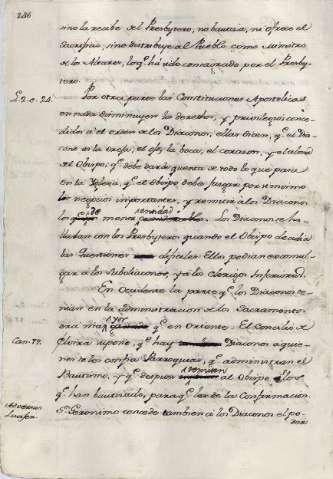 236
sino la recibe del Presbytero, no bautiza, ni ofrece el
sacrificio, sino distribuye al Pueblo como Ministro
de los Altares, lo q.e ha sido consagrado por el Presby-
tero.
L. 2. c. 24.
Por otra parte las Constituciones Apostolicas
en nada disminuyen los derechos, y privilegios conce-
didos á el orden de los Diaconos; ellas dicen, q.e el Dia-
cono es la oreja, el ojo, la boca, el corazon, y el alma
del Obispo; q.e debe darle quenta de todo lo que pasa
en la Yglesia; q.e el Obispo debe juzgar por si mismo
los negocios importantes, y remitir á los Diaconos
los de menos entidad. Los Diaconos se ha-
llaban con los Presbyteros quando el Obispo decidia
las questiones dificiles. Ellos podian excomul-
gar á los Subdiaconos, y á los Clerigos Inferiores.
En Occidente la parte q.e los Diaconos te-
nian en la administracion de los Sacramentos
era mayor q.e en Oriente. El Concilio de
Can. 77.
Elvira supone, q.e hay Diaconos á quie-
nes se les confia Parroquias, q.e administran el
Bautismo, y q.e despues al Obispo á los
q.e han bautizado, para q.e les dé la Confirmacion.
Adversus
Lucifer.
S.n Geronimo concede tambien á los Diaconos el po-